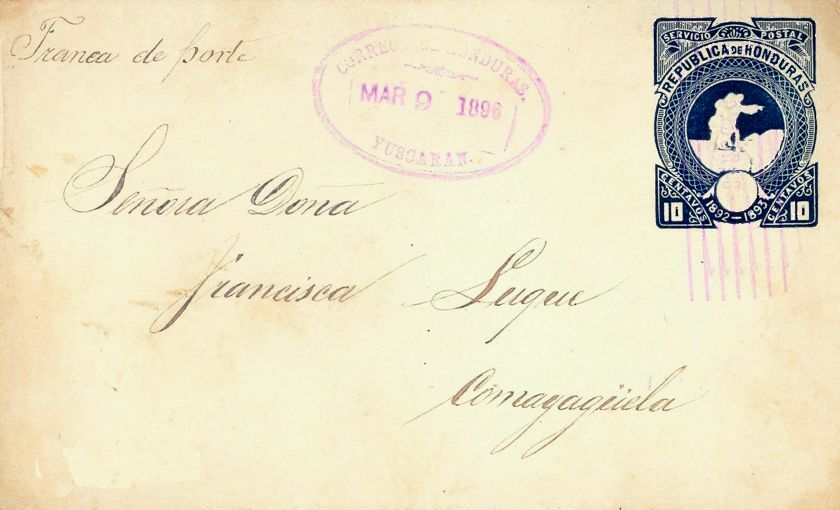 Franca de porte
CORREOS DE HONDURAS.
MAR 9 1896
YUSCARAN.
SERVICIO POSTAL
REPUBLICA DE HONDURAS
CENTAVOS CENTAVOS
10 1892-1893 10
Señora Doña
Francisca Luque
Comayagüela